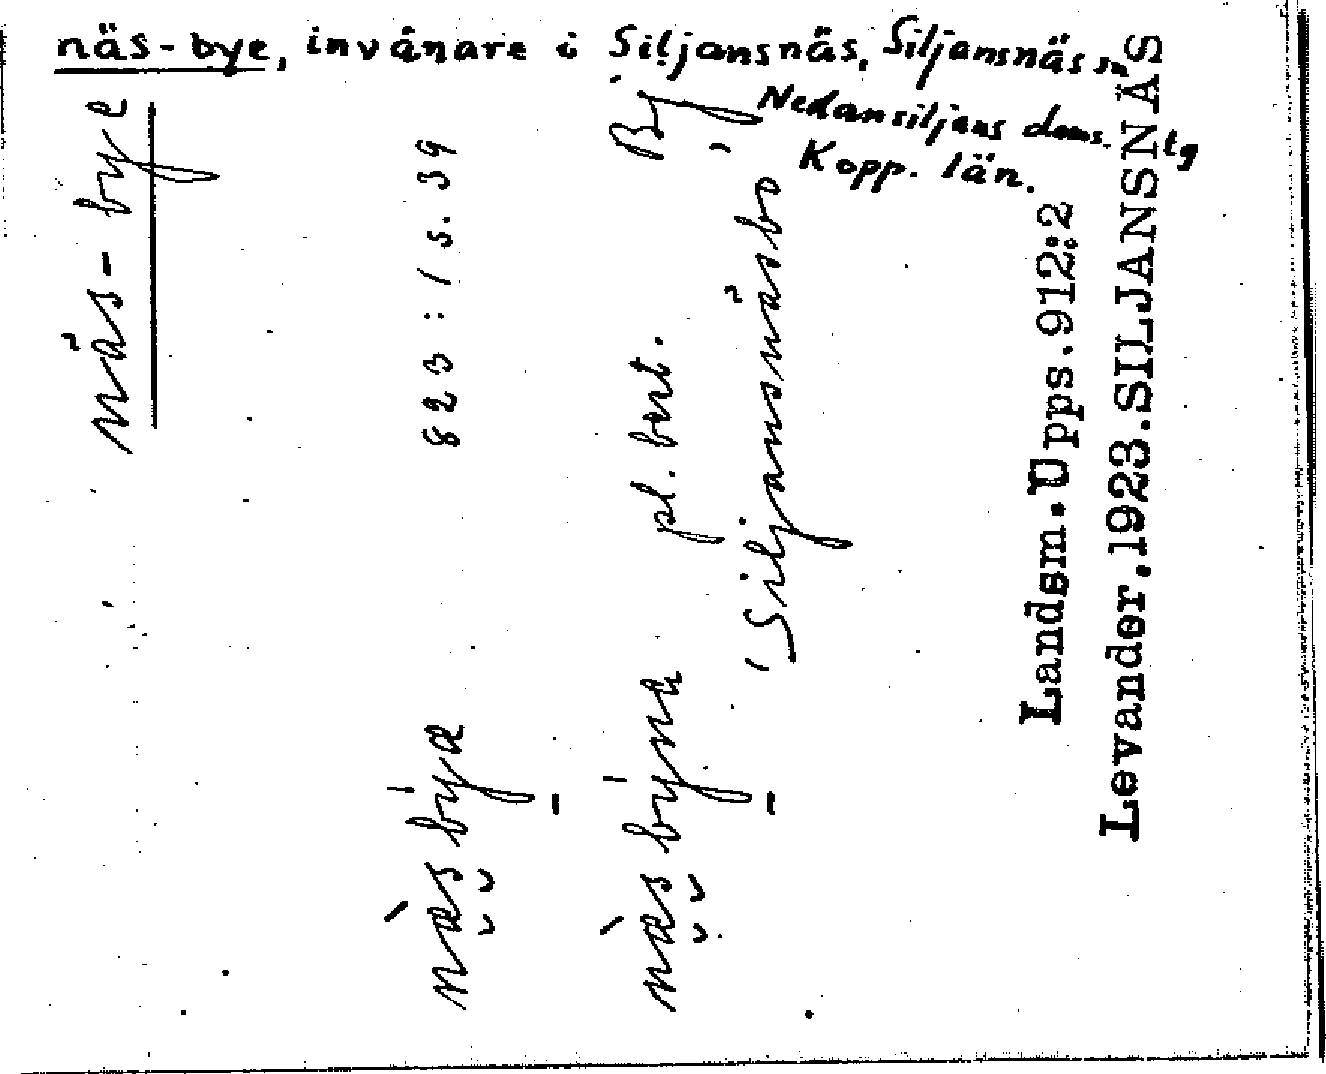 näs-bye, invånare i Siljansnäs, Siljansnäs sn
Nedansiljans doms. tg
Kopp. län.
näs-bye
823:1 s. 39
näs býɑ
näs býnɑ pl. best. By
'Siljansnäsbo'
Landsm.Upps.912:2
Levander.1923.SILJANSNÄS